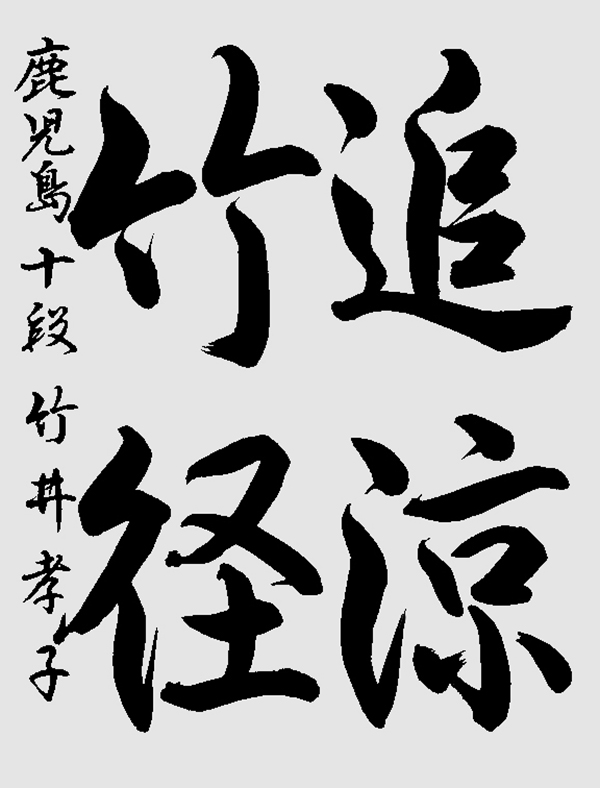 追涼
竹径
鹿児島 十段 竹井孝子